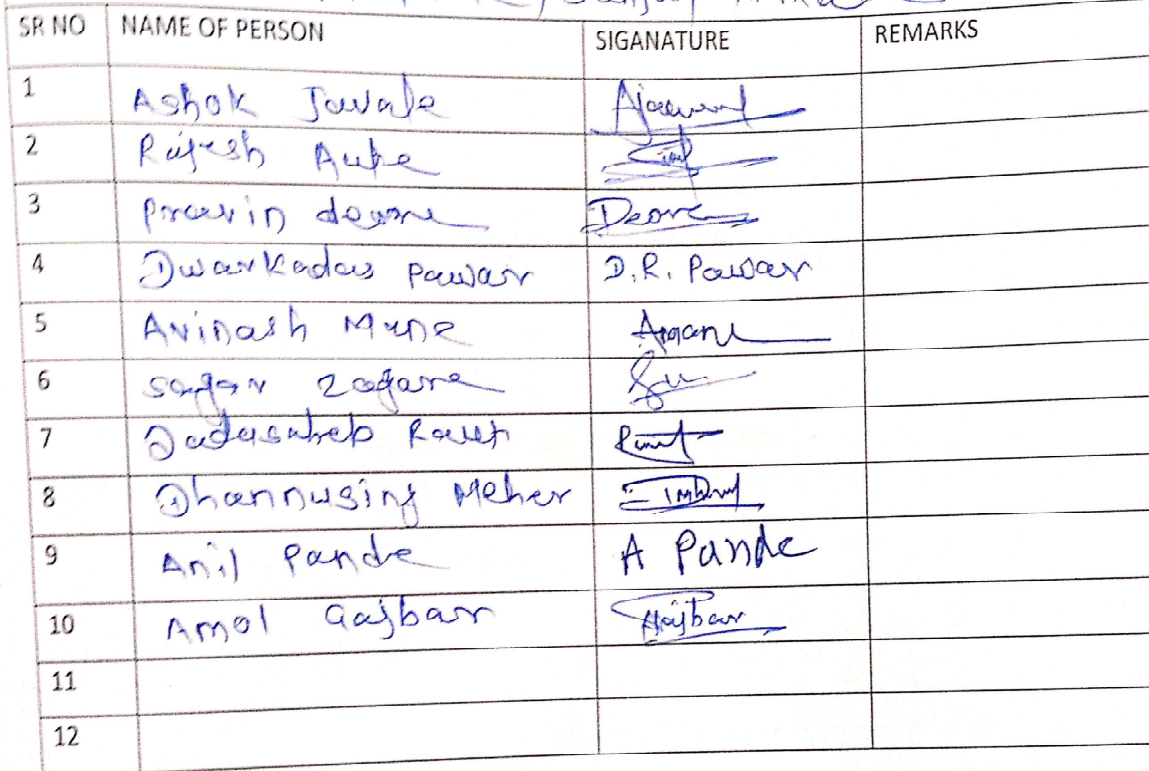 SR NO NAME OF PERSON SIGANATURE REMARKS
1 Ashok Jawale
2 Rajesh Auke
3 Pravin deore Deore
4 Dwarkadas Pawar D.R. Pawar
5 Avinash Mane
6 Sagar Zagare
7 Dadasaheb Raut Raut
8 Dhannusing Meher
9 Anil Pande A Pande
10 Amol Gajbar Gajbar
11
12